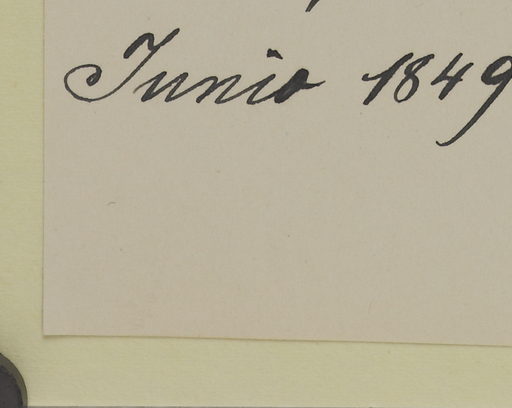 Junio 1849